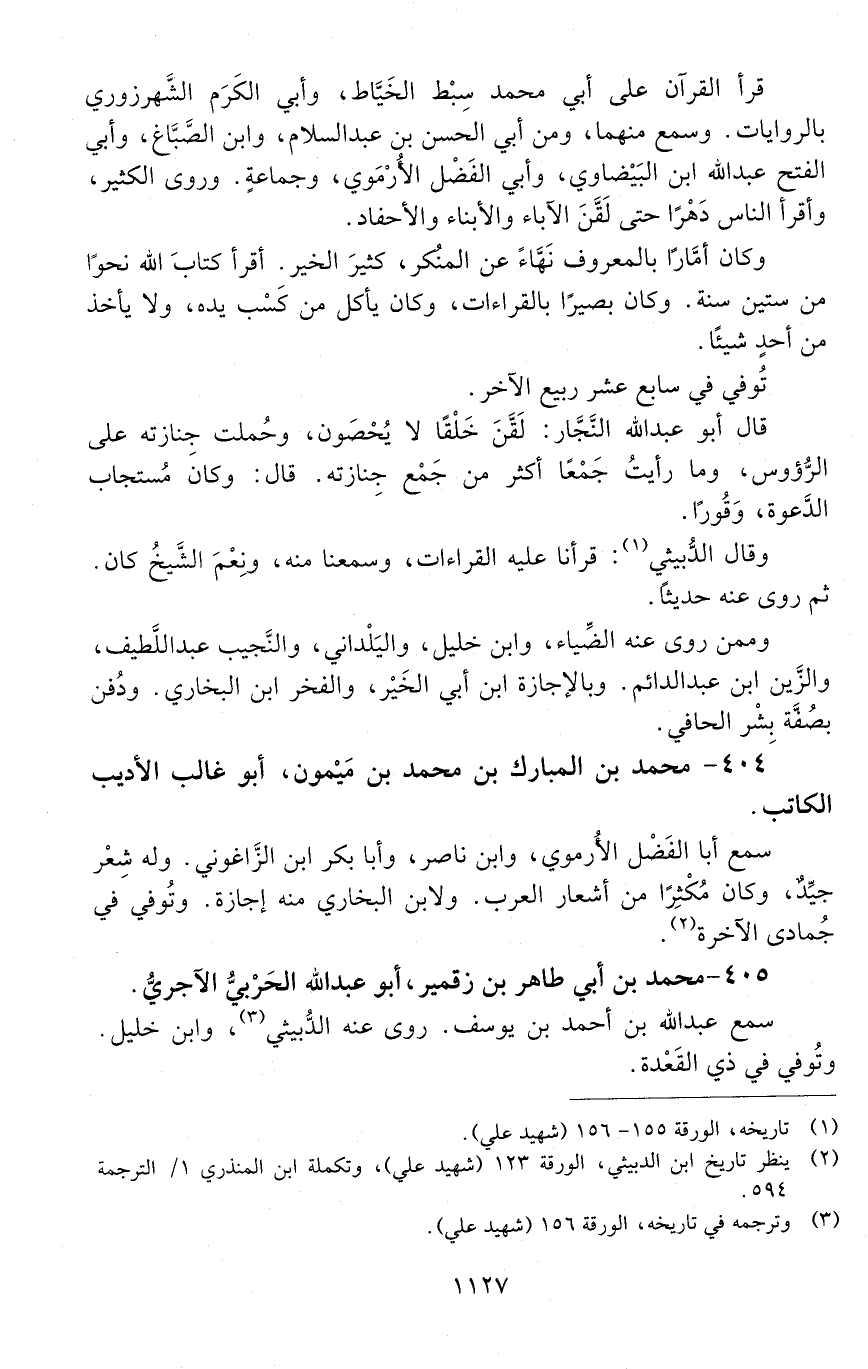 قرأ القرآن على أبي محمد سِبْط الخَيَّاط، وأبي الكَرَم الشَّهرزوري
بالروايات. وسمع منهما، ومن أبي الحسن بن عبدالسلام، وابن الصَّبَّاغ، وأبي
الفتح عبدالله ابن البَيْضاوي، وأبي الفَضْل الأُرْمَوي، وجماعةٍ. وروى الكثير،
وأقرأ الناس دَهْرًا حتى لَقَّنَ الآباء والأبناء والأحفاد.
وكان أمَّارًا بالمعروف نَهَّاءً عن المنُكر، كثيرَ الخير. أقرأ كتابَ الله نحوًا
من ستين سنة. وكان بصيرًا بالقراءات، وكان يأكل من كَسْب يده، ولا يأخذ
من أحدٍ شيئًا.
تُوفي في سابع عشر ربيع الآخر.
قال أبو عبدالله النَّجَّار: لَقَّنَ خَلْقًا لا يُحْصَون، وحُملت جِنازته على
الرُّؤوس، وما رأيتُ جَمْعًا أكثر من جَمْع جِنازته. قال: وكان مُستجاب
الدَّعوة، وَقُورًا.
وقال الدُّبيثي(١): قرأنا عليه القراءات، وسمعنا منه، ونِعْمَ الشَّيخُ كان.
ثم روى عنه حديثًا.
وممن روى عنه الضِّياء، وابن خليل، واليَلْداني، والنَّجيب عبداللَّطيف،
والزَّين ابن عبدالدائم. وبالإجازة ابن أبي الخَيْر، والفخر ابن البخاري. ودُفن
بصُفَّة بِشْر الحافي.
٤٠٤- محمد بن المبارك بن محمد بن مَيْمون، أبو غالب الأديب
الكاتب.
سمع أبا الفَضْل الأُرموي، وابن ناصر، وأبا بكر ابن الزَّاغوني. وله شِعْر
جيِّدٌ، وكان مُكْثِرًا من أشعار العرب. ولابن البخاري منه إجازة. وتُوفي في
جُمادى الآخرة(٢).
٤٠٥-محمد بن أبي طاهر بن زقمير، أبو عبدالله الحَرْبيُّ الآجريُّ.
سمع عبدالله بن أحمد بن يوسف. روى عنه الدُّبيثي(٣)، وابن خليل.
وتُوفي في ذي القَعْدة.
(١) تاريخه، الورقة ١٥٥- ١٥٦ (شهيد علي).
(٢) ينظر تاريخ ابن الدبيثي، الورقة ١٢٣ (شهيد علي)، وتكملة ابن المنذري ١/ الترجمة
٥٩٤.
(٣) وترجمه في تاريخه، الورقة ١٥٦ (شهيد علي).
١١٢٧